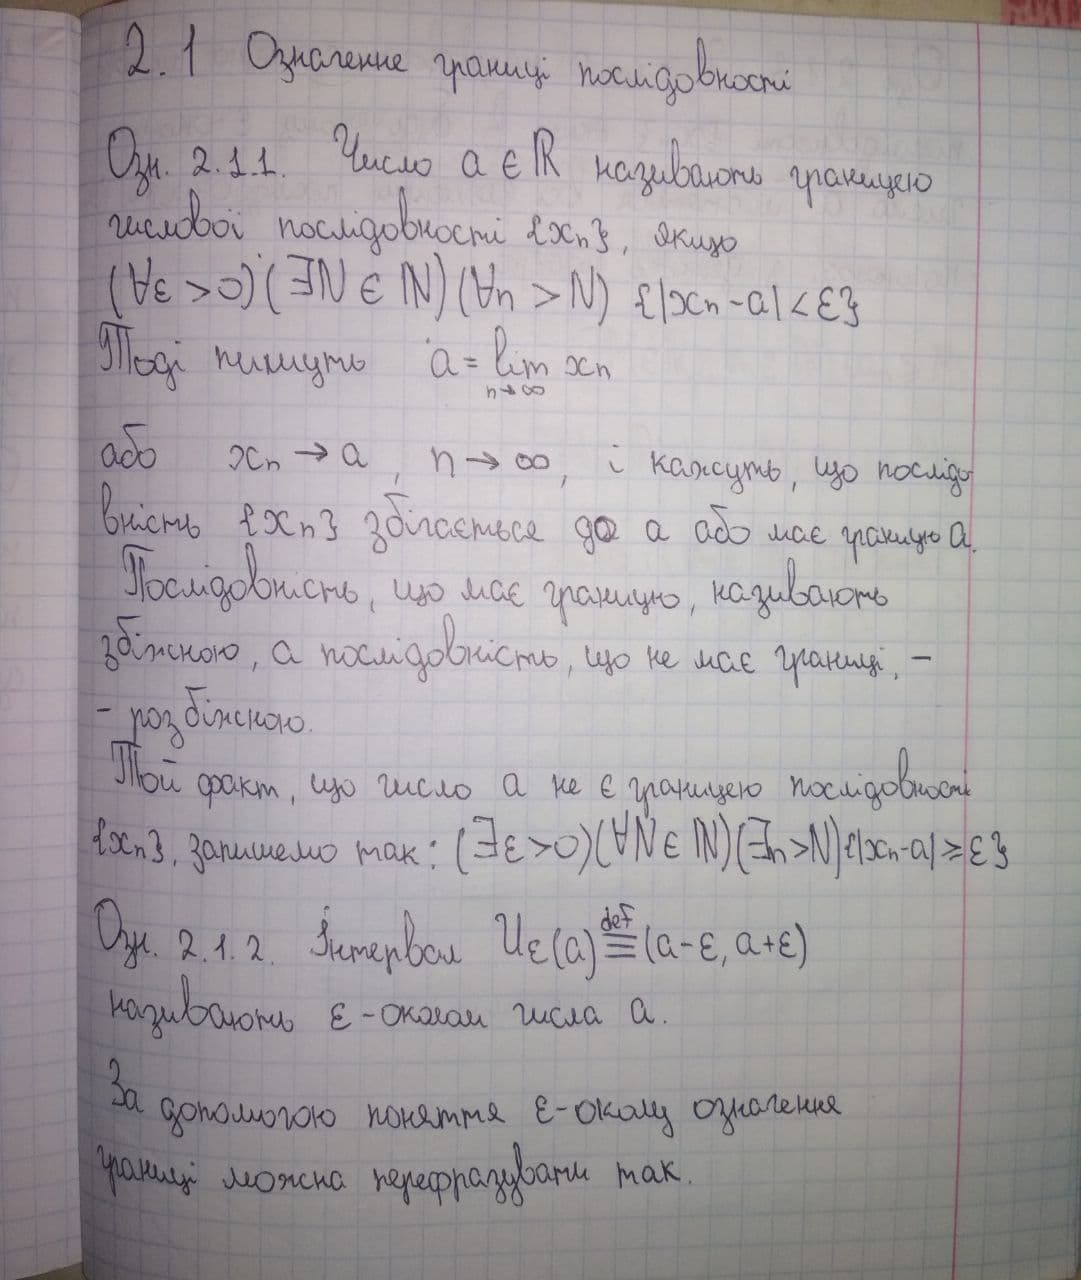 2.1 Означення границі послідовності
Озн. 2.1.1. Число a ∈ ℝ називають границею
числової послідовності {xₙ}, якщо
(∀ε > 0)(∃N ∈ ℕ)(∀n > N) {|xₙ - a| < ε}
Тоді пишуть a = lim xₙ
n→∞
або xₙ → a, n → ∞, і кажуть, що послідо
вність {xₙ} збігається до a або має границю a.
Послідовність, що має границю, називають
збіжною, а послідовність, що не має границі, –
– розбіжною.
Той факт, що число a не є границею послідовності
{xₙ}, запишемо так: (∃ε > 0)(∀N ∈ ℕ)(∃n > N){|xₙ - a| ≥ ε}
Озн. 2.1.2. Інтервал Uε(a) ≝ (a - ε, a + ε)
називають ε-околом числа a.
За допомогою поняття ε-околу означення
границі можна перефразувати так.